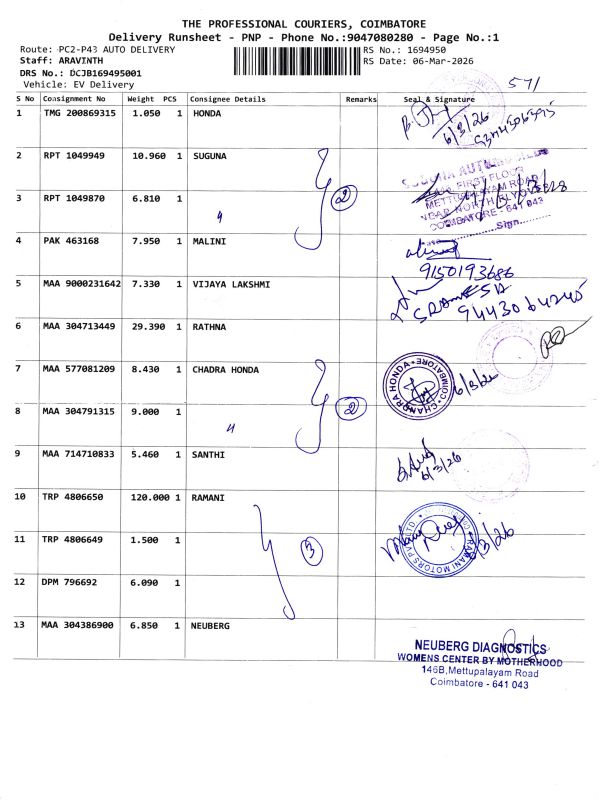 THE PROFESSIONAL COURIERS, COIMBATORE
Delivery Runsheet - PNP - Phone No.:9047080280 - Page No.:1
Route: PC2-P43 AUTO DELIVERY RS No.: 1694950
Staff: ARAVINTH RS Date: 06-Mar-2026
DRS No.: DCJB169495001
Vehicle: EV Delivery 571
S No Consignment No Weight PCS Consignee Details Remarks Seal & Signature
1 TMG 200869315 1.050 1 HONDA 6/3/26
2 RPT 1049949 10.960 1 SUGUNA
3 RPT 1049870 6.810 1 " 2
FIRST FLOOR
METTUPALAYAM ROAD
COIMBATORE - 641 043
Sign
4 PAK 463168 7.950 1 MALINI
9150193686
5 MAA 9000231642 7.330 1 VIJAYA LAKSHMI
9443064245
6 MAA 304713449 29.390 1 RATHNA
7 MAA 577081209 8.430 1 CHADRA HONDA CHANDRA HONDA COIMBATORE 6/3/26
8 MAA 304791315 9.000 1 " 2
9 MAA 714710833 5.460 1 SANTHI 6/3/26
10 TRP 4806650 120.000 1 RAMANI
11 TRP 4806649 1.500 1 3 RAMANI MOTORS PVT LTD 6/3/26
12 DPM 796692 6.090 1
13 MAA 304386900 6.850 1 NEUBERG
NEUBERG DIAGNOSTICS
WOMENS CENTER BY MOTHERHOOD
146B,Mettupalayam Road
Coimbatore - 641 043